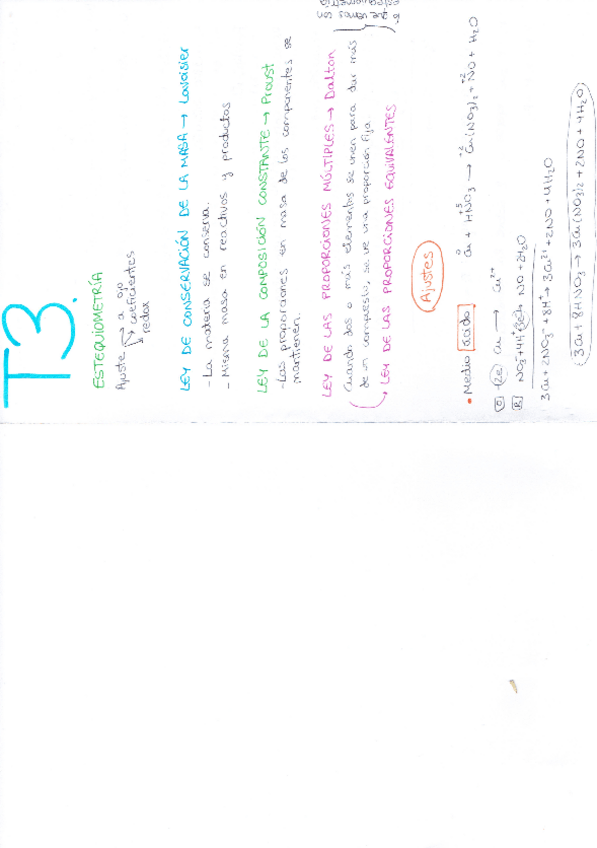 T3.
ESTEQUIOMETRÍA
Ajuste → a ojo
→ coeficientes
redox
LEY DE CONSERVACIÓN DE LA MASA → Lavoisier
- La materia se conserva.
- Misma masa en reactivos y productos
LEY DE LA COMPOSICIÓN CONSTANTE → Proust
- Las proporciones en masa de los componentes se
mantienen.
LEY DE LAS PROPORCIONES MÚLTIPLES → Dalton
Cuando dos o más elementos se unen para dar más
de un compuesto, se ve una proporción fija.
→ LEY DE LAS PROPORCIONES EQUIVALENTES
que vemos en
estequiometría
Ajustes
• Medio ácido
Cu + HNO3 → Cu(NO3)2 + NO + H2O
0 +5 +2 +2
O 2e Cu → Cu2+
R NO3- + 4H+ 3e- → NO + 2H2O
3Cu + 2NO3- + 8H+ → 3Cu2+ + 2NO + 4H2O
3Cu + 8HNO3 → 3Cu(NO3)2 + 2NO + 4H2O